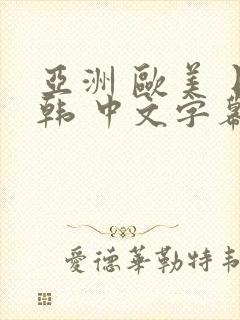 亞洲 歐美
韩 中文字幕
愛德華勒特